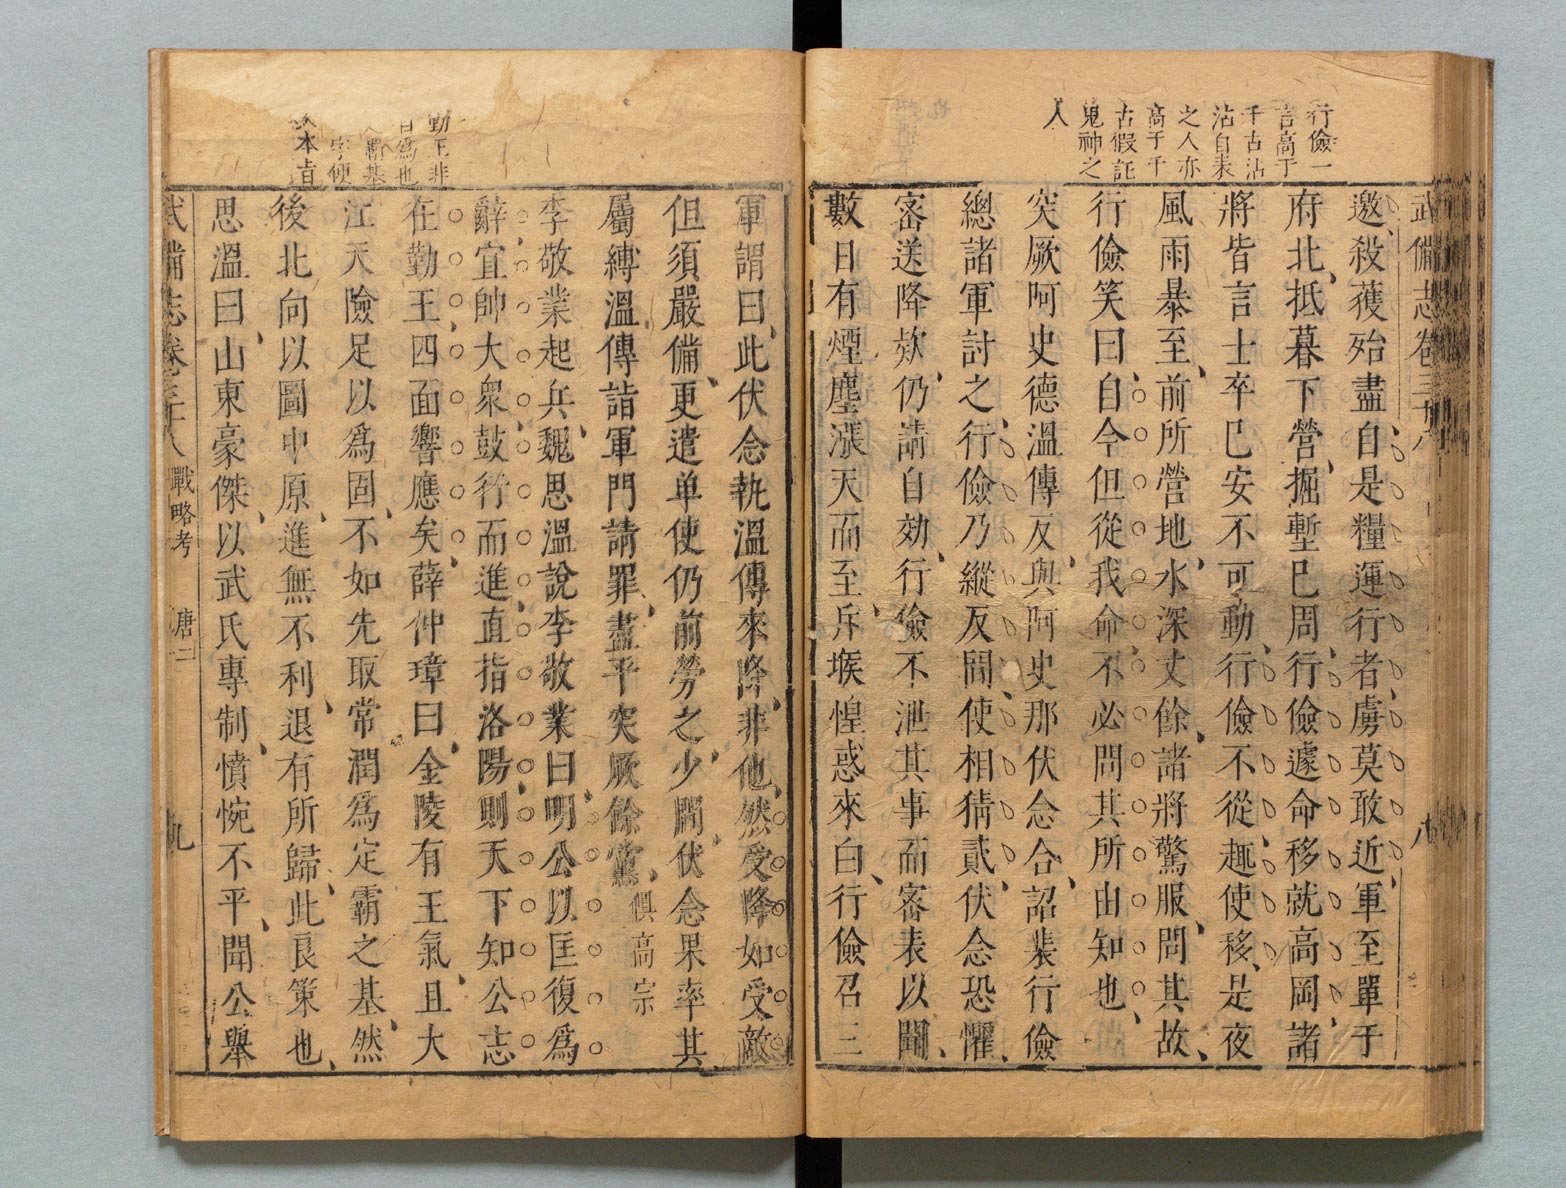 行儉一
言高于
千古沾
沾自表
之人亦
高于千
古假託
鬼神之
人
武備志卷三十八
八
邀殺獲殆盡自是糧運行者虜莫敢近軍至單于
府北抵暮下營掘塹已周行儉遽命移就高岡諸
將皆言士卒已安不可動行儉不從趣使移是夜
風雨暴至前所營地水深丈餘諸將驚服問其故
行儉笑曰自今但從我命不必問其所由知也
突厥阿史德溫傳反與阿史那伏念合詔裴行儉
總諸軍討之行儉乃縱反間使相猜貳伏念恐懼
密送降欵仍請自効行儉不泄其事而密表以聞
數日有煙塵漲天而至斥堠惶惑來白行儉召三
勤王非
為也
霸基
字便
本旨
軍謂曰此伏念執溫傳來降非他然受降如受敵
但須嚴備更遣单使仍前勞之少間伏念果率其
屬縛溫傳詣軍門請罪盡平突厥餘黨俱高宗
李敬業起兵魏思溫說李敬業曰明公以匡復為
辭宜帥大衆鼓行而進直指洛陽則天下知公志
在勤王四面響應矣薛仲璋曰金陵有王氣且大
江天險足以為固不如先取常潤為定霸之基然
後北向以圖中原進無不利退有所歸此良策也
思溫曰山東豪傑以武氏專制憤惋不平聞公舉
武備志卷三十八 戰略考 唐二 九